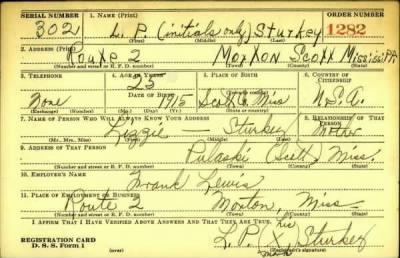 SERIAL NUMBER 1. NAME (Print) ORDER NUMBER
302 L. P. (initials only) Sturkey 1282
(First) (Middle) (Last)
2. ADDRESS (Print)
Route 2 Morton Scott Mississippi
(Number and street or R. F. D. number) (Town) (County) (State)
3. TELEPHONE 4. AGE IN YEARS 5. PLACE OF BIRTH 6. COUNTRY OF CITIZENSHIP
25
None DATE OF BIRTH 1915 Scott Co. Miss U.S.A.
(Exchange) (Number) (Mo.) (Day) (Yr.) (Town or county) (State or country)
7. NAME OF PERSON WHO WILL ALWAYS KNOW YOUR ADDRESS 8. RELATIONSHIP OF THAT PERSON
Lizzie — Sturkey Mother
(Mr., Mrs., Miss) (First) (Middle) (Last)
9. ADDRESS OF THAT PERSON
Pulaski (Scott) Miss.
(Number and street or R. F. D. number) (Town) (County) (State)
10. EMPLOYER'S NAME
Frank Lewis
11. PLACE OF EMPLOYMENT OR BUSINESS
Route 2 Morton, Miss
(Number and street or R. F. D. number) (Town) (County) (State)
I AFFIRM THAT I HAVE VERIFIED ABOVE ANSWERS AND THAT THEY ARE TRUE.
REGISTRATION CARD
D. S. S. Form 1
L. P. (his X mark) Sturkey